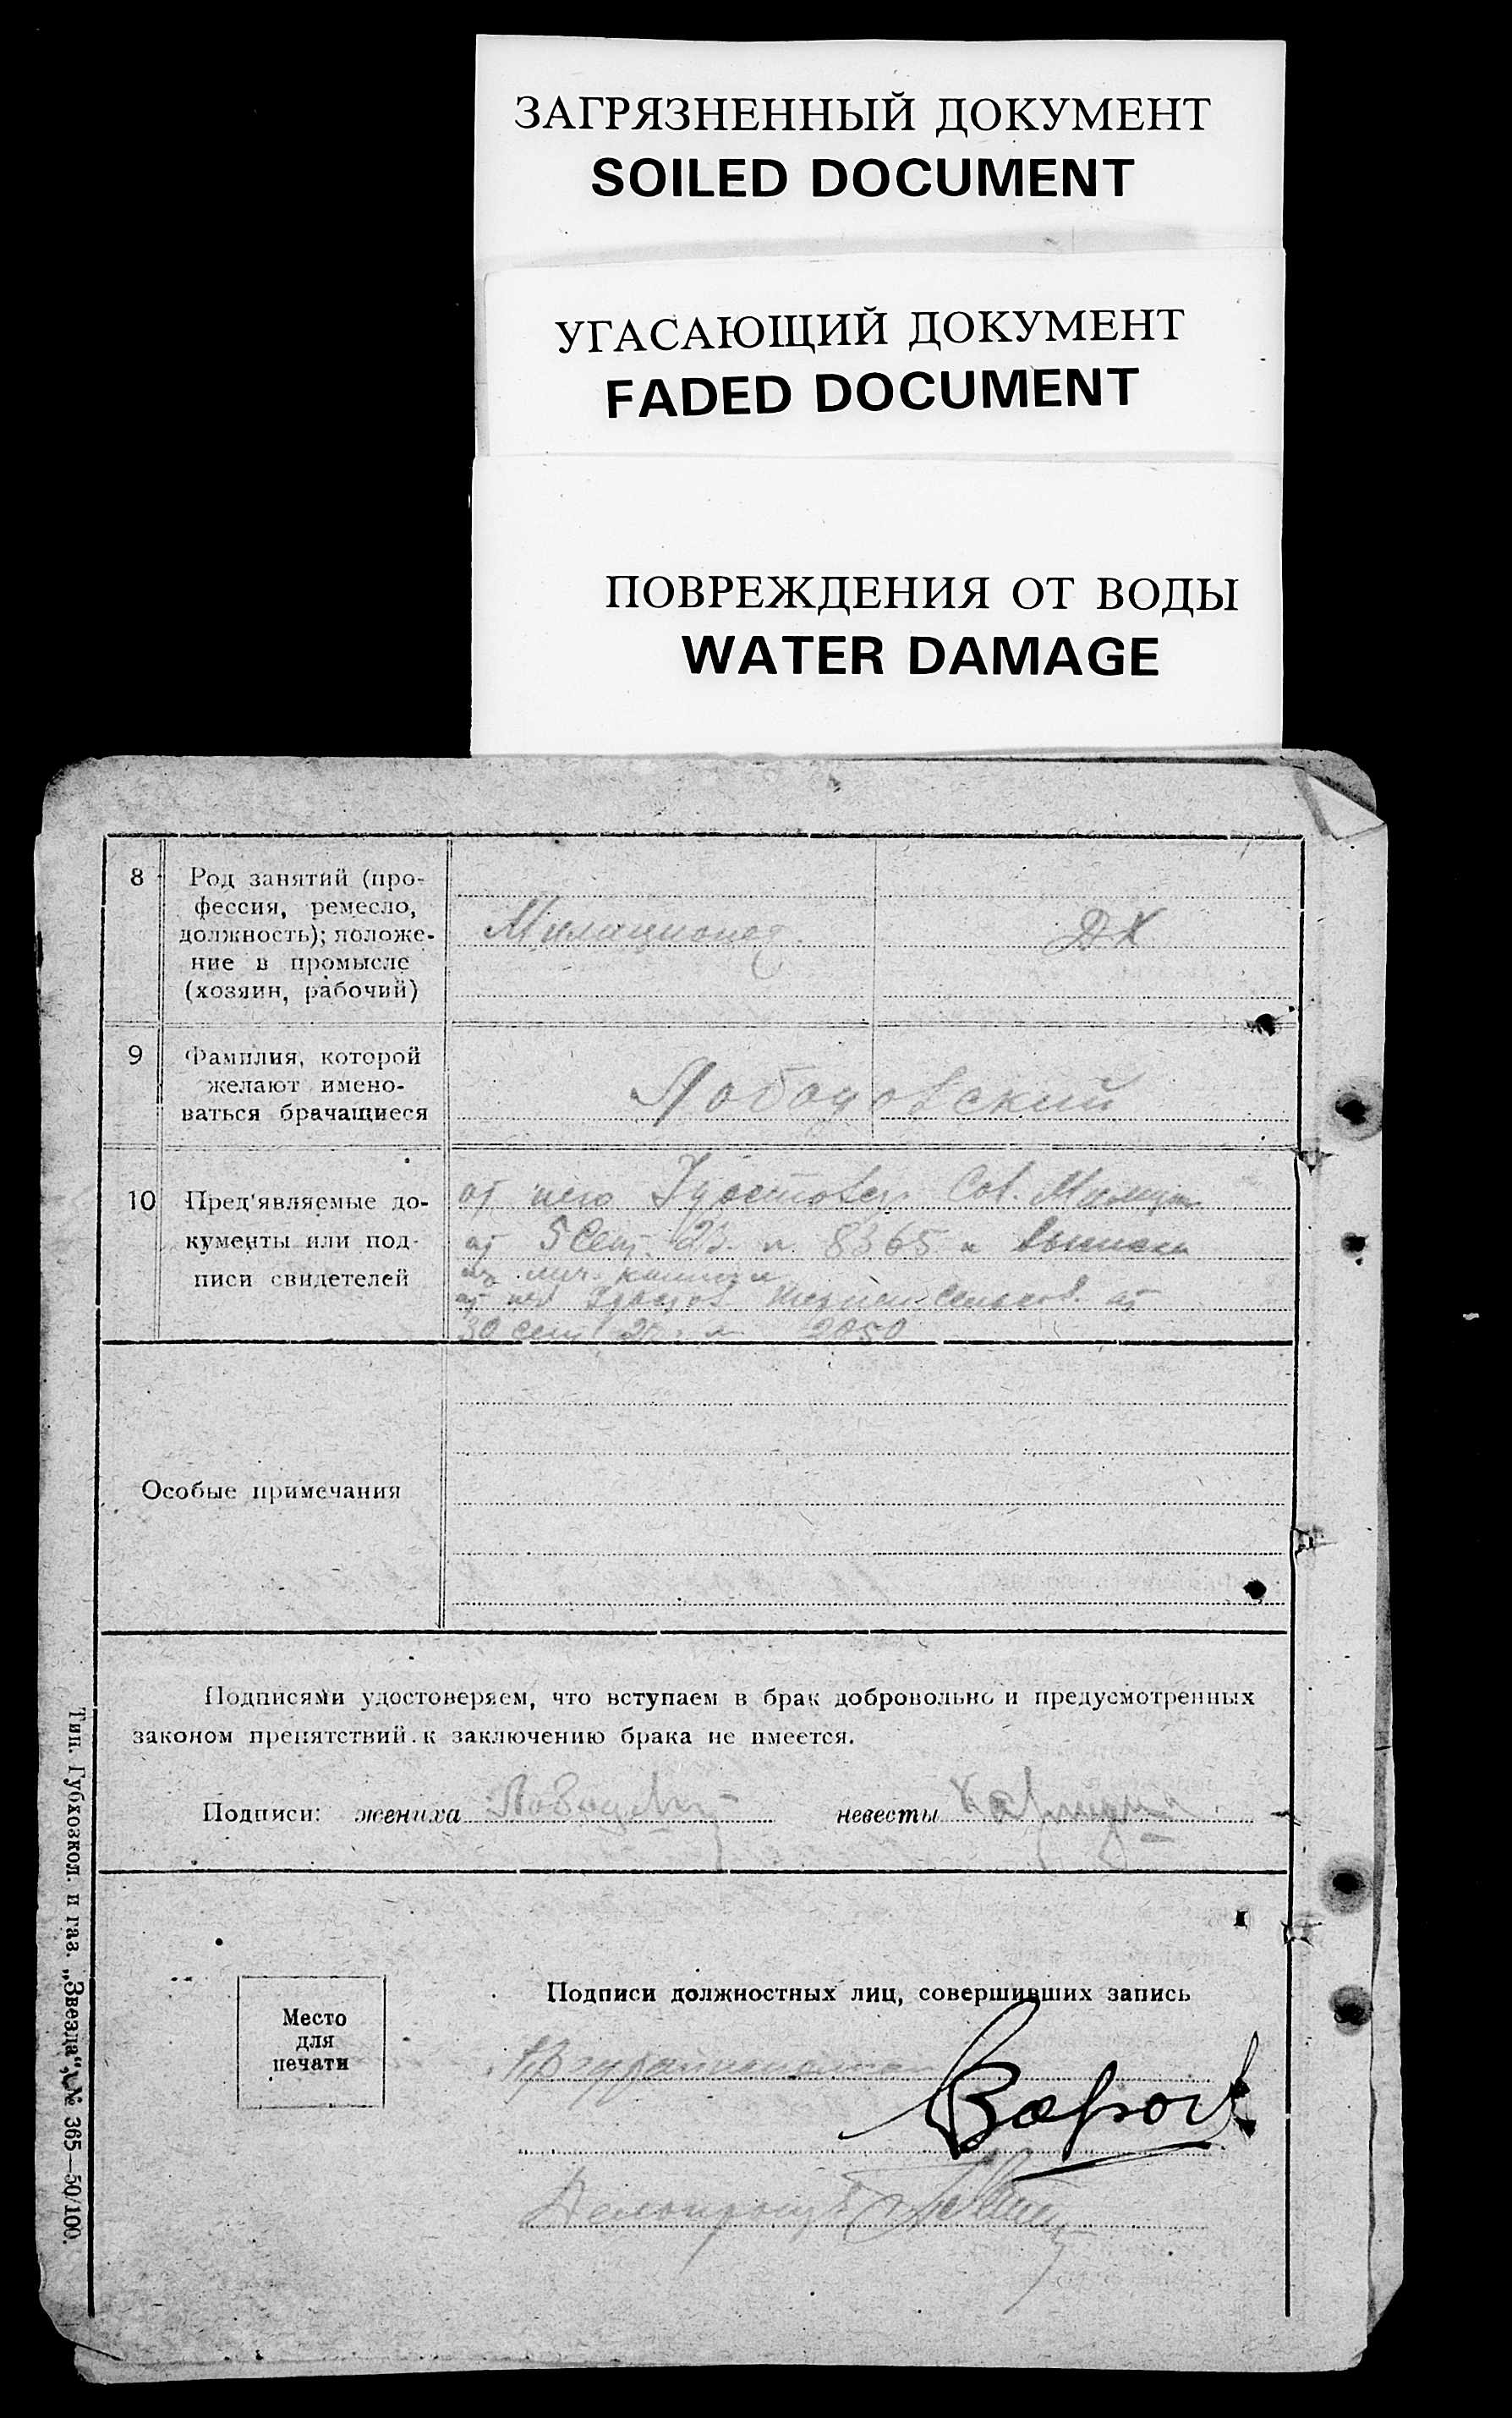 ЗАГРЯЗНЕННЫЙ ДОКУМЕНТ
SOILED DOCUMENT
УГАСАЮЩИЙ ДОКУМЕНТ
FADED DOCUMENT
ПОВРЕЖДЕНИЯ ОТ ВОДЫ
WATER DAMAGE
8 Род занятий (про-
фессия, ремесло,
должность); положе-
ние в промысле
(хозяин, рабочий)
Милиционер ДХ
9 Фамилия, которой
желают имено-
ваться брачащиеся
10 Пред'являемые до-
кументы или под-
писи свидетелей
от него Удостовер. Сов. Милиции
от 5 Сент. 23. 8365 и выписка
30 сент 2050
Особые примечания
Подписями удостоверяем, что вступаем в брак добровольно и предусмотренных
законом препятствий к заключению брака не имеется.
Подписи: жениха невесты
Место
для
печати
Подписи должностных лиц, совершивших запись
Делопроизв
Тип. Губхозкол. и газ. „Звезда“, № 365—50/100.